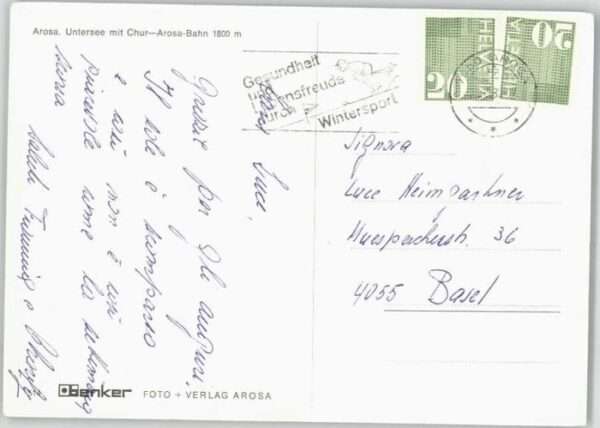 Arosa. Untersee mit Chur—Arosa-Bahn 1800 m
Gesundheit
und
Lebensfreude
durch
Wintersport
20 HELVETIA
HELVETIA 20
AROSA
Luce,
Grazie per gli auguri.
Il sole è scomparso
e non è così
piacevole come la settimana
Saluti
Signora
Luce Heimgartner
36
4055 Basel
Benker FOTO + VERLAG AROSA